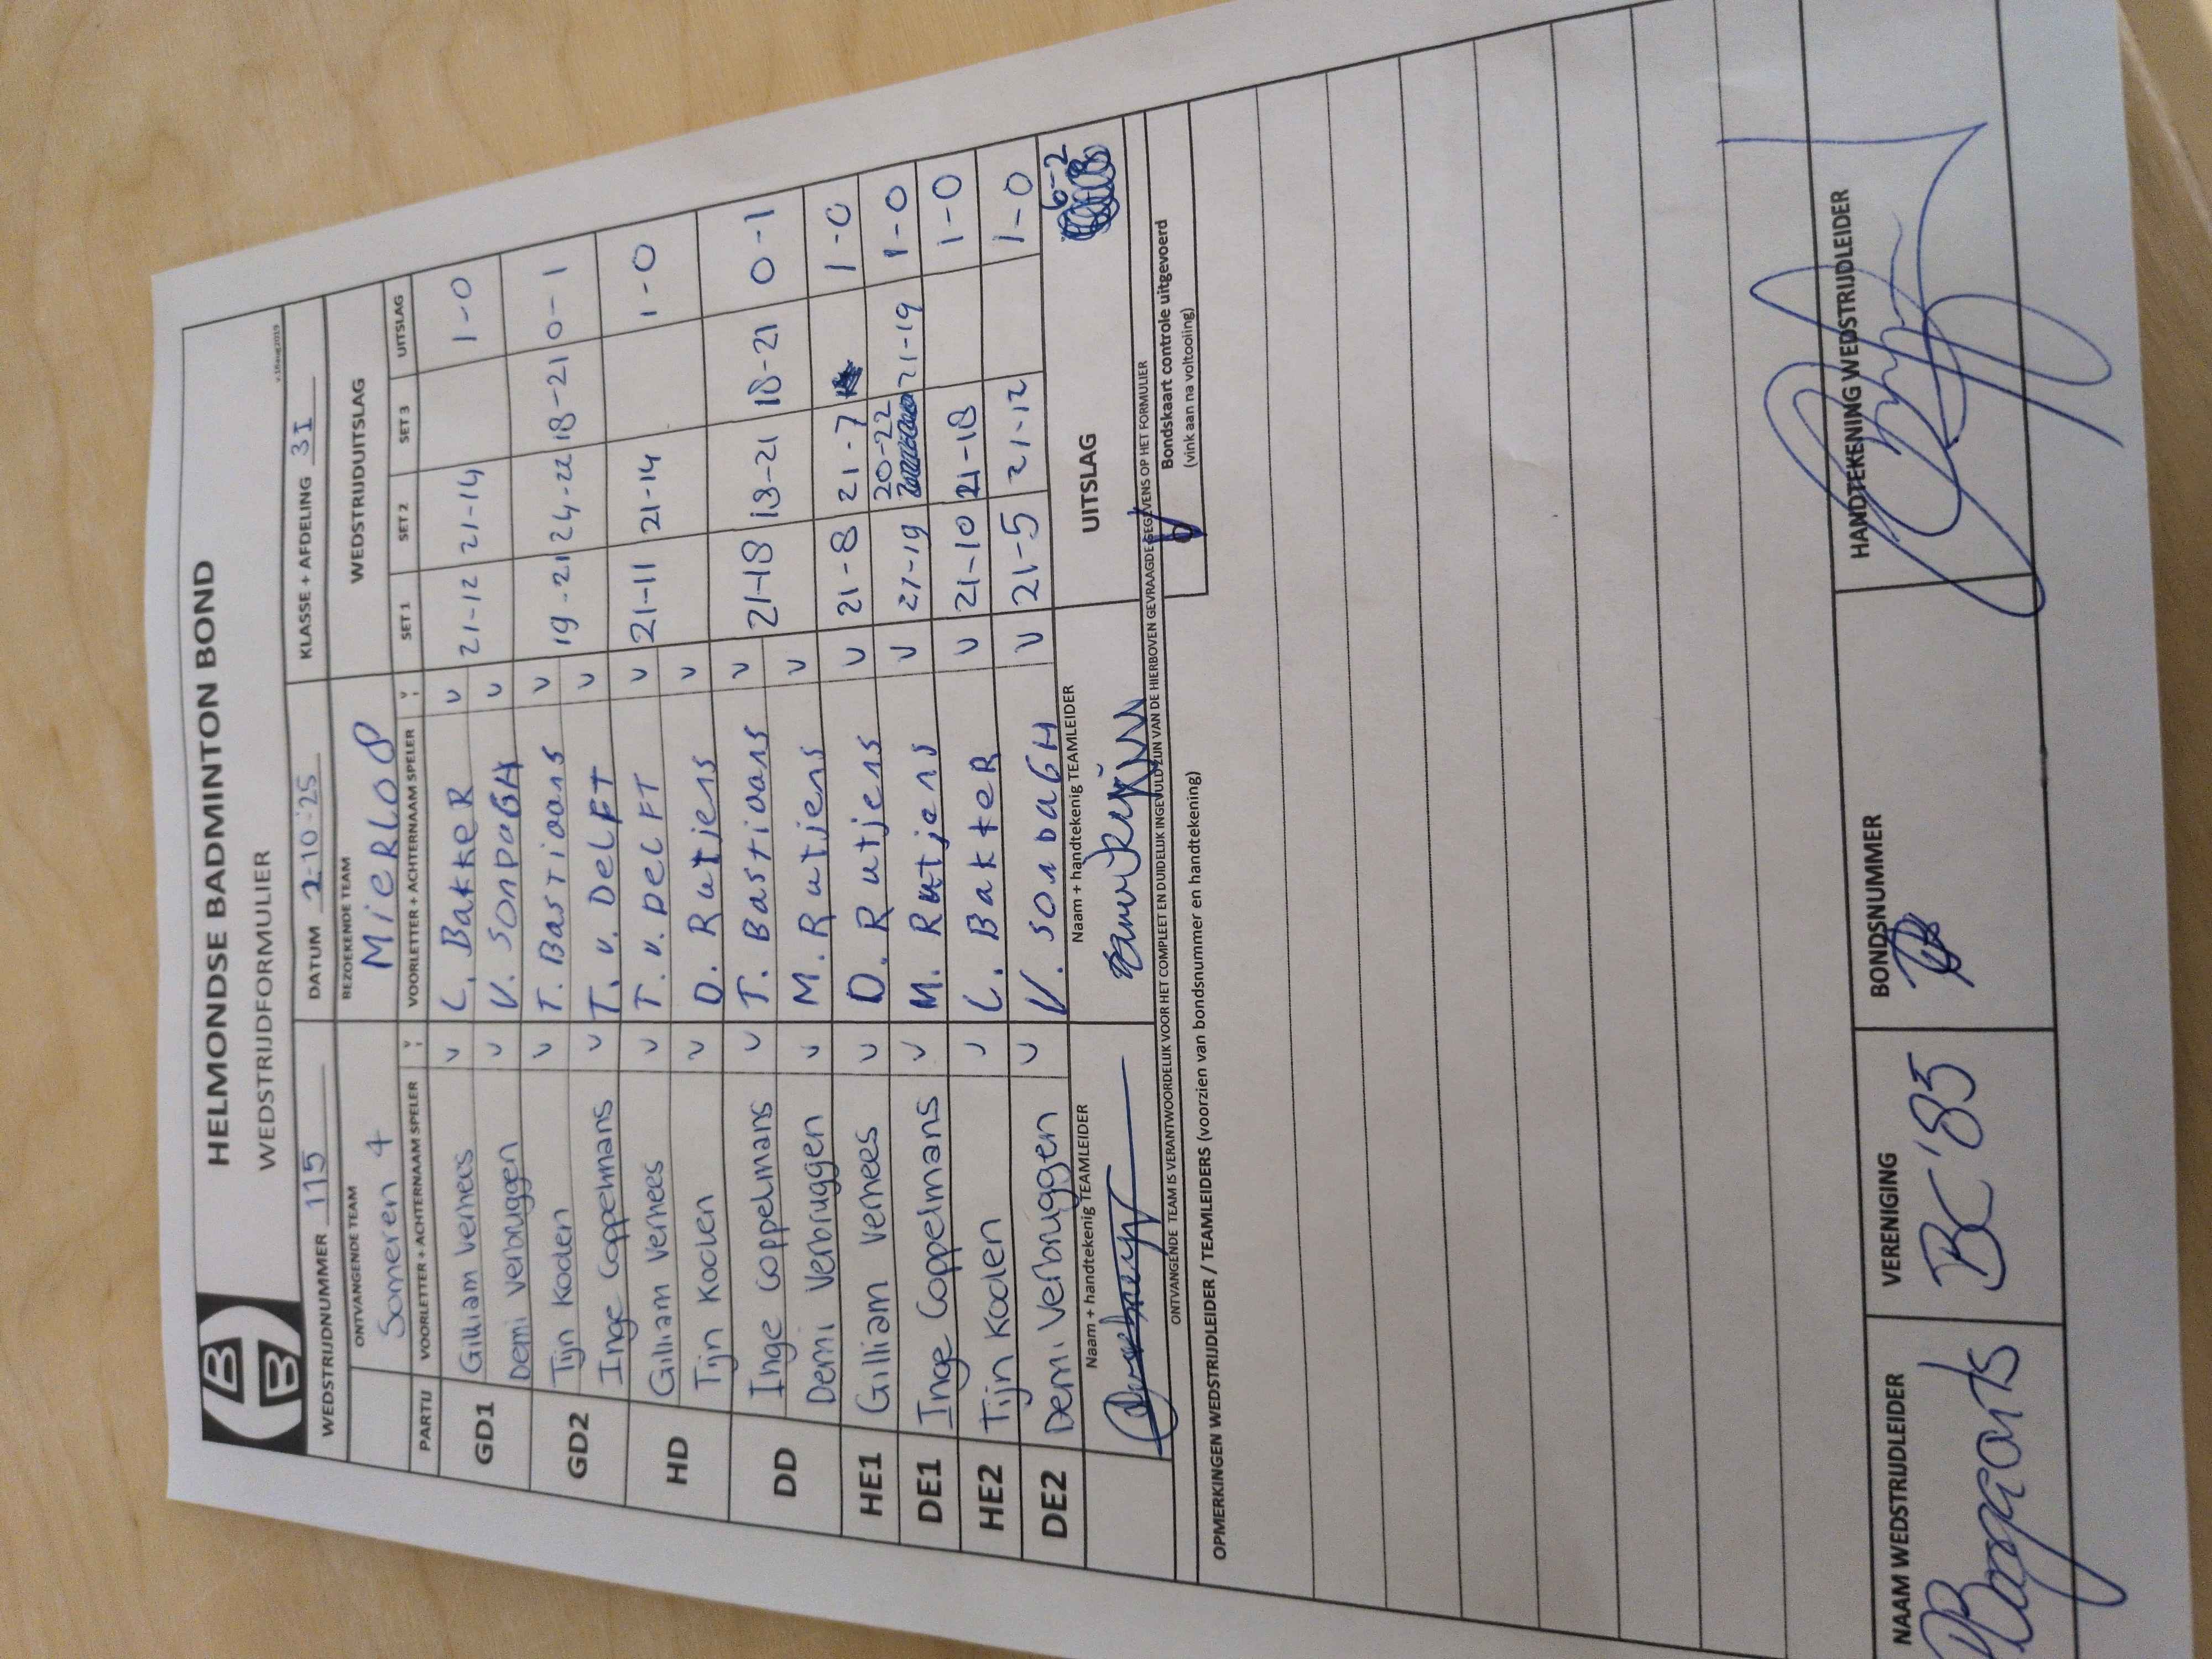 HELMONDSE BADMINTON BOND
WEDSTRIJDFORMULIER
v.16aug2019
WEDSTRIJDNUMMER 115 DATUM 2-10-'25 KLASSE + AFDELING 3I
ONTVANGENDE TEAM BEZOEKENDE TEAM WEDSTRIJDUITSLAG
Someren 4 MieRLO 8
PARTIJ VOORLETTER + ACHTERNAAM SPELER V VOORLETTER + ACHTERNAAM SPELER V SET 1 SET 2 SET 3 UITSLAG
GD1 Gilliam Vernees V L. BakkeR V 21-12 21-14 1-0
Demi Verbruggen V V. SonDaGH V
GD2 Tijn Koolen V T. Bastiaans V 19-21 24-22 18-21 0-1
Inge Coppelmans V T. v. DelFT V
HD Gilliam Vernees V T. v. DelFT V 21-11 21-14 1-0
Tijn Koolen V D. Rutjens V
DD Inge Coppelmans V T. Bastiaans V 21-18 18-21 18-21 0-1
Demi Verbruggen V M. Rutjens V
HE1 Gilliam Vernees V D. Rutjens V 21-8 21-7 1-0
DE1 Inge Coppelmans V M. Rutjens V 21-19 20-22 21-19 1-0
HE2 Tijn Koolen V L. BakkeR V 21-10 21-18 1-0
DE2 Demi Verbruggen V V. SonDaGH V 21-5 21-12 1-0
Naam + handtekenig TEAMLEIDER Naam + handtekenig TEAMLEIDER UITSLAG 6-2
ONTVANGENDE TEAM IS VERANTWOORDELIJK VOOR HET COMPLEET EN DUIDELIJK INGEVULD ZIJN VAN DE HIERBOVEN GEVRAAGDE GEGEVENS OP HET FORMULIER
Bondskaart controle uitgevoerd
(vink aan na voltooing)
OPMERKINGEN WEDSTRIJDLEIDER / TEAMLEIDERS (voorzien van bondsnummer en handtekening)
NAAM WEDSTRIJDLEIDER VERENIGING BONDSNUMMER HANDTEKENING WEDSTRIJDLEIDER
BC'85